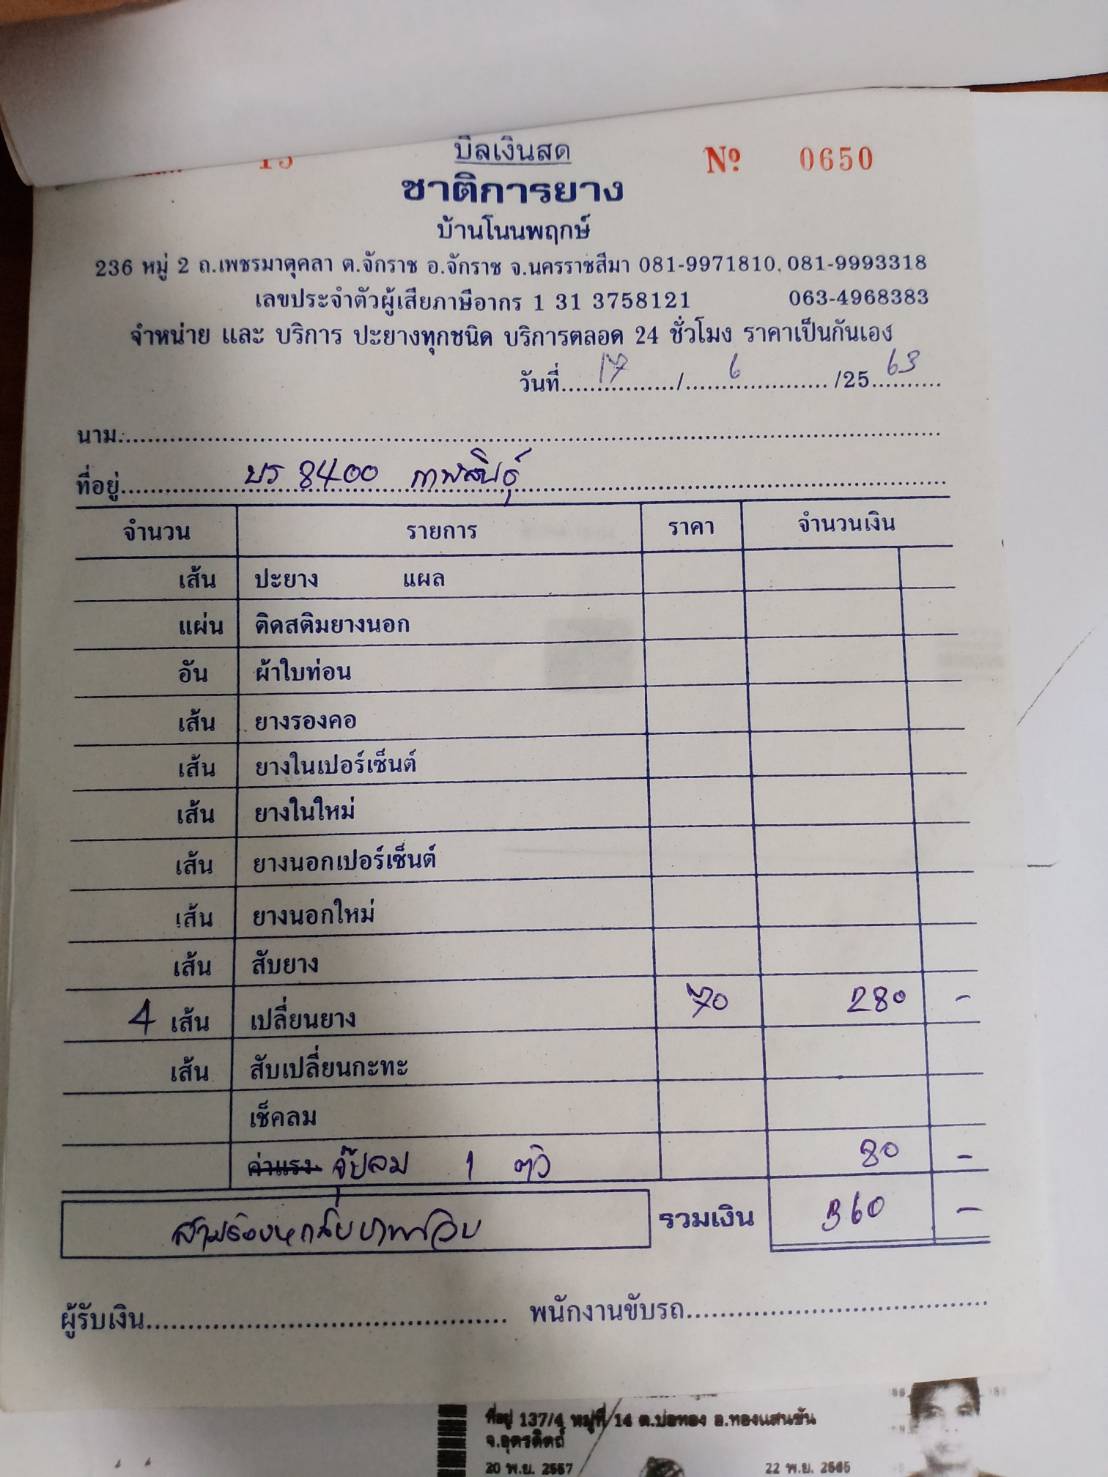 บิลเงินสด
№ 0650
ชาติการยาง
บ้านโนนพฤกษ์
236 หมู่ 2 ถ.เพชรมาตุคลา ต.จักราช อ.จักราช จ.นครราชสีมา 081-9971810, 081-9993318
เลขประจำตัวผู้เสียภาษีอากร 1 31 3758121 063-4968383
จำหน่าย และ บริการ ปะยางทุกชนิด บริการตลอด 24 ชั่วโมง ราคาเป็นกันเอง
วันที่ 17 / 6 /25 63
นาม
ที่อยู่ บร 8400 กาฬสินธุ์
จำนวน รายการ ราคา จำนวนเงิน
เส้น ปะยาง แผล
แผ่น ติดสติมยางนอก
อัน ผ้าใบท่อน
เส้น ยางรองคอ
เส้น ยางในเปอร์เซ็นต์
เส้น ยางในใหม่
เส้น ยางนอกเปอร์เซ็นต์
เส้น ยางนอกใหม่
เส้น สับยาง
4 เส้น เปลี่ยนยาง 70 280 -
เส้น สับเปลี่ยนกะทะ
เช็คลม
ค่าแรง จุ๊ปลม 1 ตัว 80 -
สามร้อยหกสิบบาทถ้วน รวมเงิน 360 -
ผู้รับเงิน พนักงานขับรถ
ที่อยู่ 137/4 หมู่ที่ 14 ต.บ่อทอง อ.ทองแสนขัน
จ.อุตรดิตถ์
20 พ.ย. 2557 22 พ.ย. 2565